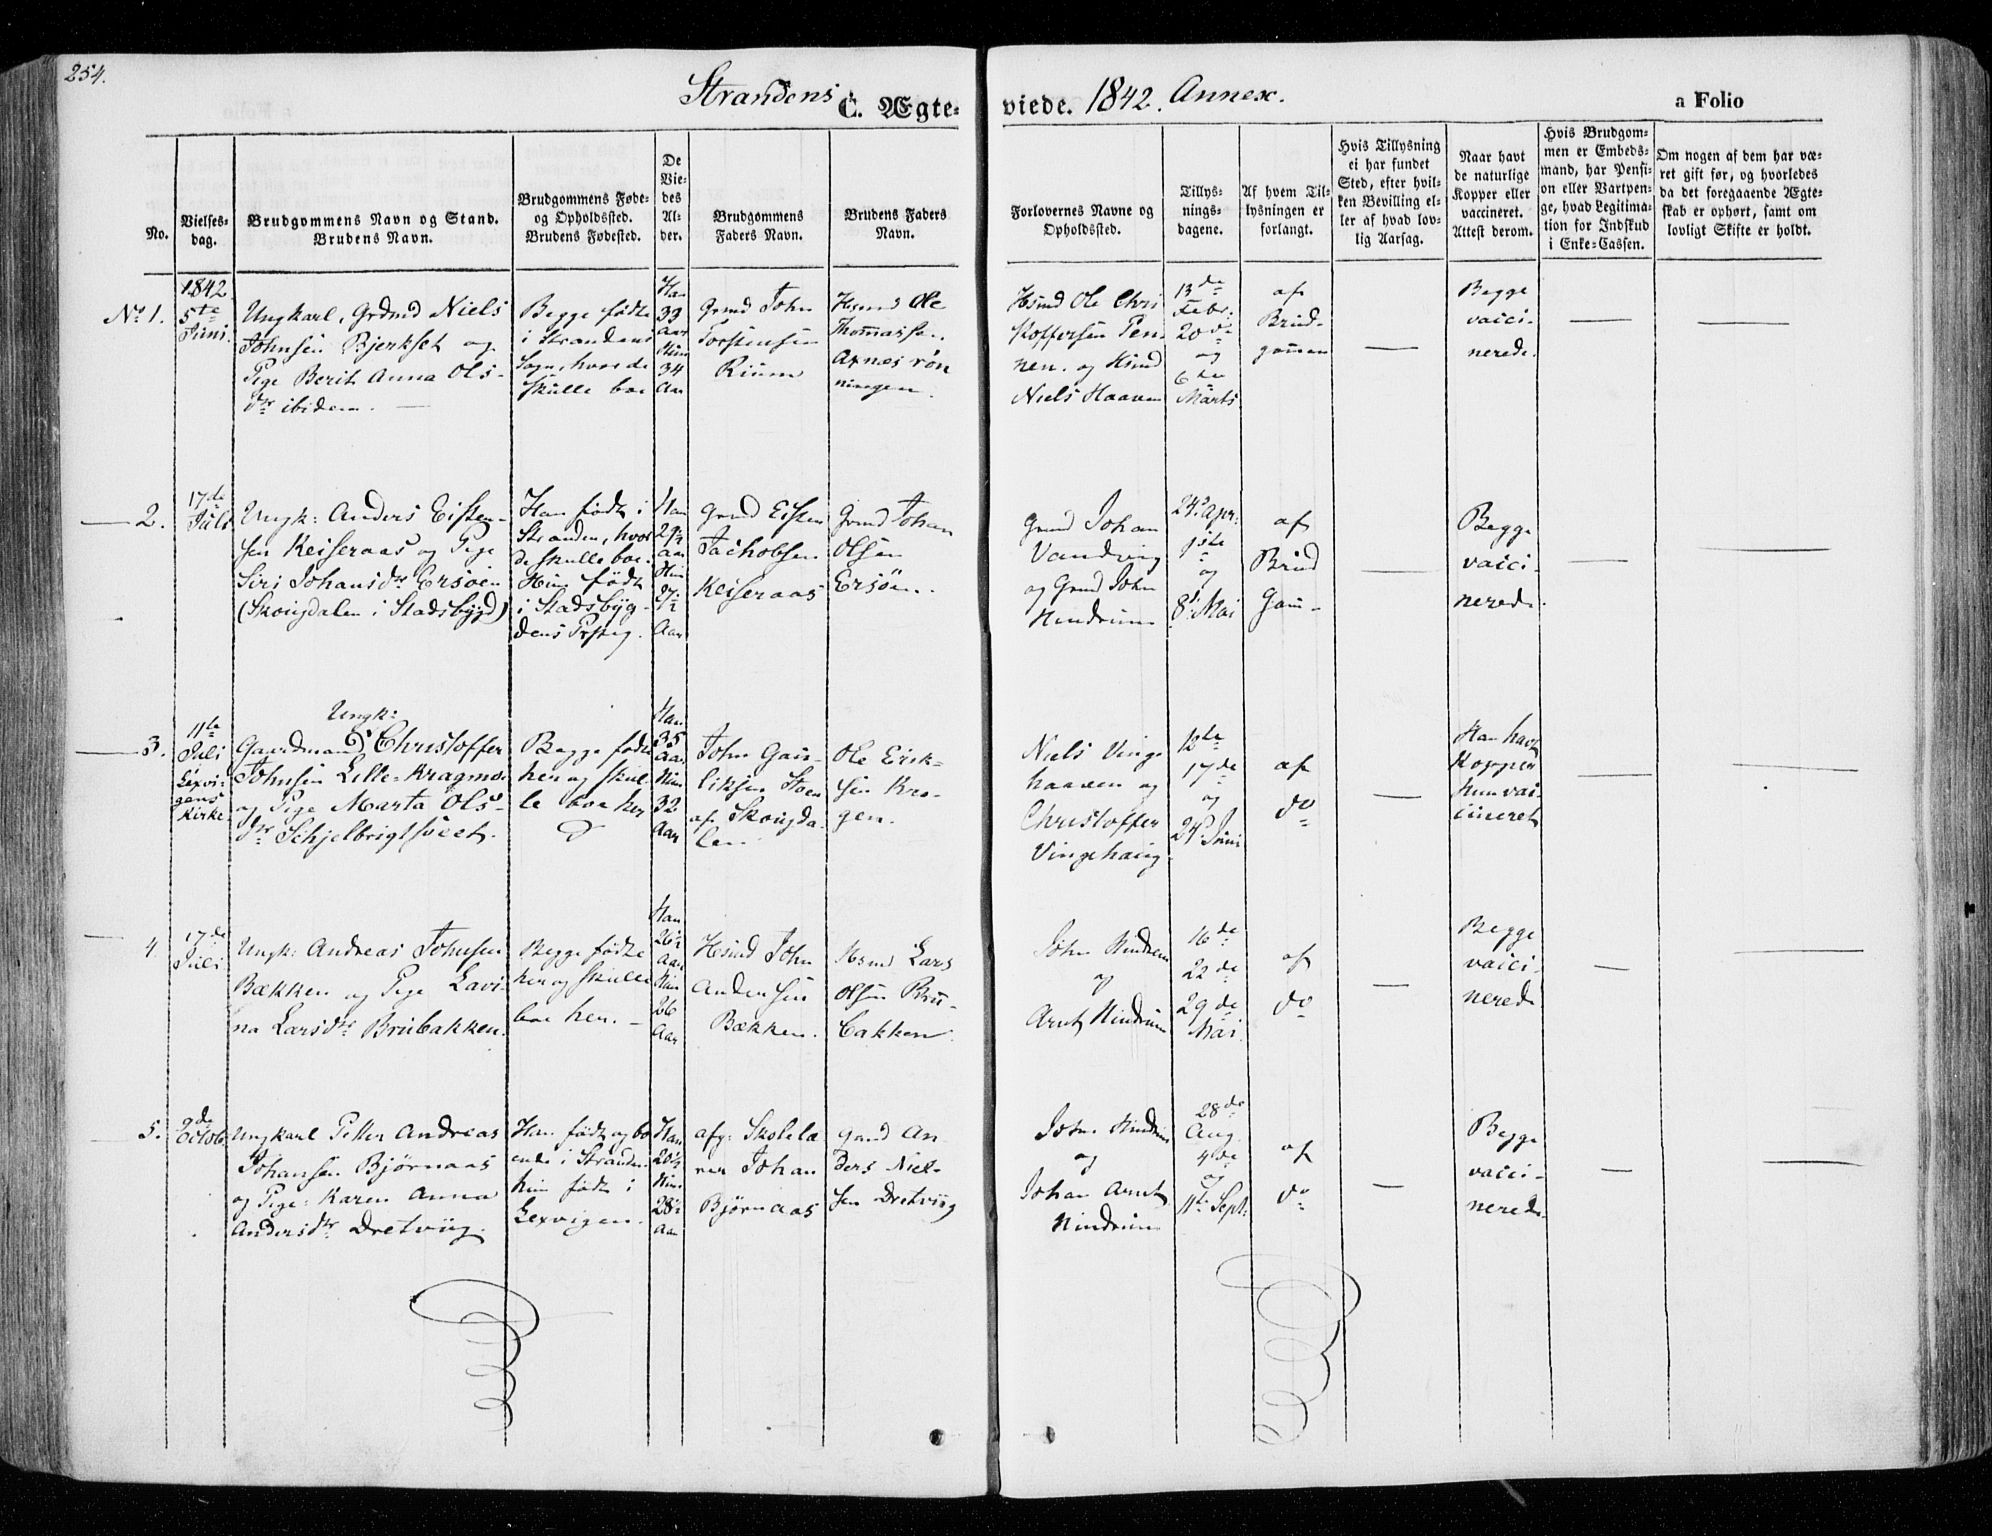 254.
Strandens C. Ægte-
viede. 1842. Annex.
a Folio
No.
Vielses-
dag.
Brudgommens Navn og Stand.
Brudens Navn.
Brudgommens Føde-
og Opholdssted.
Brudens Fødested.
De
Vie-
des
Al-
der.
Brudgommens
Faders Navn.
Brudens Faders
Navn.
Forlovernes Navne og
Opholdssted.
Tillys-
nings-
dagene.
Af hvem Til-
lysningen er
forlangt.
Hvis Tillysning
ei har fundet
Sted, efter hvil-
ken Bevilling el-
ler af hvad lov-
lig Aarsag.
Naar havt
de naturlige
Kopper eller
vaccineret.
Attest derom.
Hvis Brudgom-
men er Embeds-
mand, har Pensi-
on eller Vartpen-
ge, hvad Legitima-
tion for Indskud
i Enke-Cassen.
Om nogen af dem har væ-
ret gift før, og hvorledes
da det foregaaende Ægte-
skab er ophørt, samt om
lovligt Skifte er holdt.
No 1.
1842
5te
Juni.
Ungkarl, Grdmd Niels
Johnsen Bjerkset og
Pige Berit Anna Ols-
dr ibidem. —
Begge fødte
i Strandens
Sogn, hvor de
skulle boe
Han
33
Aar
Hun
34
Aar
Grmd John
Torstensen
Rium
Husmd Ole
Thomassen
Aonesrøn
ningen.
Hsmd Ole Chri
stoffersen Pen
nen. og Hsmd
Niels Haaven
13de
Febr.
20de
og
6te
Marts
af
Brud-
gomen
—
Begge
vacci-
nerede.
—
—
— 2.
17de
Juli
Ungk: Anders Eisten-
sen Keiseraas og Pige
Siri Johansdr Ersøen
(Skougdalen i Stadsbygd)
Han født i
Stranden, hvor
de skulle boe.
Hun født
i Stadsbyg-
dens Prsteg.
Han
29½
Aar
Hun
27½
Aar
Grmd Eisten
Jachobsen
Keiseraas
Grmd Johan
Olsen
Ersøen.
Grmd Johan
Vandvig
og Grmd John
Hindrum
24de Apr:
1ste
og
8de Mai
af
Brud
Gom-
—
Begge
vacci-
nerede.
—
—
— 3.
11te
Juli
Lexvi-
gens
Kirke
Ungk:
Gaardmand Christoffer
Johnsen Lille-Kragmo
og Pige Marta Ols-
dr Schjelbrigtsveet.
Begge fødte
her og skul-
le boe her
Han
35
Aar
Hun
32
Aar
John Gun-
likssen Moen
af Skougda-
len
Ole Erik-
sen Kra-
gen.
Niels Vinge
haaven og
Christoffer
Vingehaug
12te
17de
og
24de Juni
af
do
—
Han havt
Kopper
hun vac-
cineret
—
—
— 4.
17de
Juli
Ungk: Andreas Johnsen
Bækken og Pige Lavi
na Larsdr Brubakken.
Begge fødte
her og skulle
boe her. —
Han
26½
Aar
Hun
26
Aar
Hsmd John
Andersen
Bækken.
Hsmd Lars
Olsen Bru-
bakken.
John Hindrem
og
Arnt Hindrum
16de
22de
29de
Mai.
af
do
—
Begge
vacci-
nerede
—
—
— 5.
2de
Octob.
Ungkarl Petter Andreas
Johansen Bjørnaas
og Pige: Karen Anna
Andersdr Dretviig.
Han født og bo
ende i Stranden
hun født i
Lexvigen.
Han
20½
Hun
28½
Aar
afg: Skolelæ
rer Johan
Bjørnaas
Grmd An
ders Niel-
sen Dretviig
John Hindrum
og
Johan Arnt
Hindrum
28de
Aug.
4de
og
11te Sept:
af
do
—
Begge
vacci-
nerede.
—
—